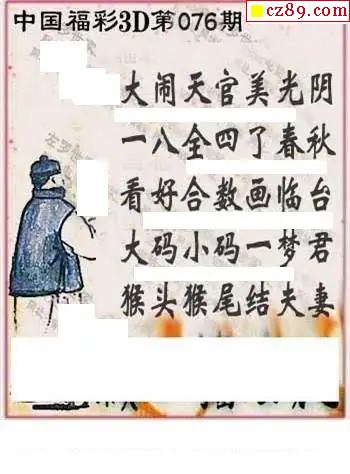 中国福彩3D第076期
cz89.com
大闹天官美光阴
一八全四了春秋
看好合数画临台
大码小码一梦君
猴头猴尾结夫妻